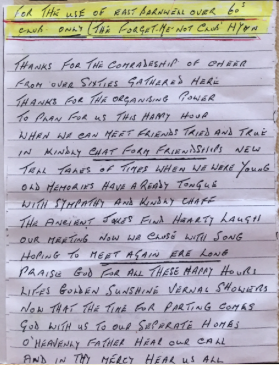 FOR THE USE OF EAST BARNWELL OVER 60s
CLUB ONLY THE FORGET-ME-NOT CLUB HYMN
THANKS FOR THE COMRADESHIP OF CHEER
FROM OVER SIXTIES GATHERED HERE
THANKS FOR THE ORGANISING POWER
TO PLAN FOR US THIS HAPPY HOUR
WHEN WE CAN MEET FRIENDS TRIED AND TRUE
IN KINDLY CHAT FORM FRIENDSHIPS NEW
TALL TALES OF TIMES WHEN WE WERE YOUNG
OLD MEMORIES HAVE A READY TONGUE
WITH SYMPATHY AND KINDLY CHAFF
THE ANCIENT JOKES FIND HEARTY LAUGH
OUR MEETING NOW WE CLOSE WITH SONG
HOPING TO MEET AGAIN ERE LONG
PRAISE GOD FOR ALL THESE HAPPY HOURS
LIFES GOLDEN SUNSHINE VERNAL SHOWERS
NOW THAT THE TIME FOR PARTING COMES
GOD WITH US TO OUR SEPERATE HOMES
O'HEAVENLY FATHER HEAR OUR CALL
AND IN THY MERCY HEAR US ALL